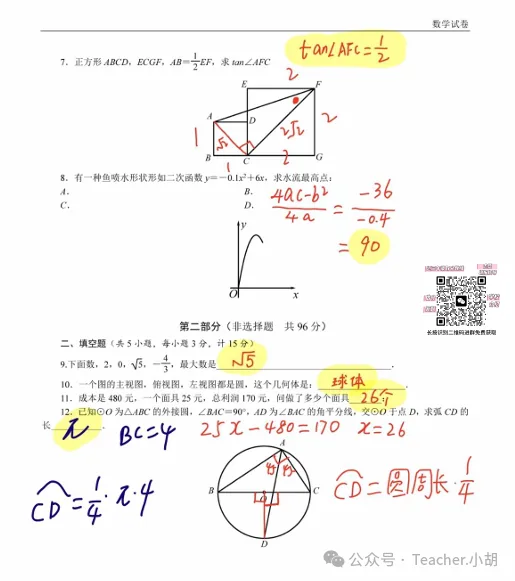 数学试卷
tan∠AFC=1/2
7．正方形 ABCD，ECGF，AB=1/2EF，求 tan∠AFC
2
E F
A D 2
1 √2 2√2
B 1 C 2 G
8．有一种鱼喷水形状形如二次函数 y=－0.1x²+6x，求水流最高点：
A． B．
C． D．
(4ac-b²)/4a = -36/-0.4
= 90
y
O x
长按识别二维码进群免费获取
第二部分（非选择题 共 96 分）
二、填空题（共 5 小题，每小题 3 分，计 15 分）
9.下面数，2，0，√5，－4/3，最大数是 √5 ．
10．一个图的主视图，俯视图，左视图都是圆，这个几何体是： 球体 ．
11．成本是 480 元，一个面具 25 元，总利润 170 元，问做了多少个面具 26个
12．已知⊙O 为△ABC 的外接圆，∠BAC=90°，AD 为∠BAC 的角平分线，交⊙O 于点 D，求弧 CD 的
长 π ． BC=4 25x-480=170 x=26
A
45 45
B O C
D
CD=1/4·π·4
CD=圆周长·1/4
公众号 · Teacher.小胡